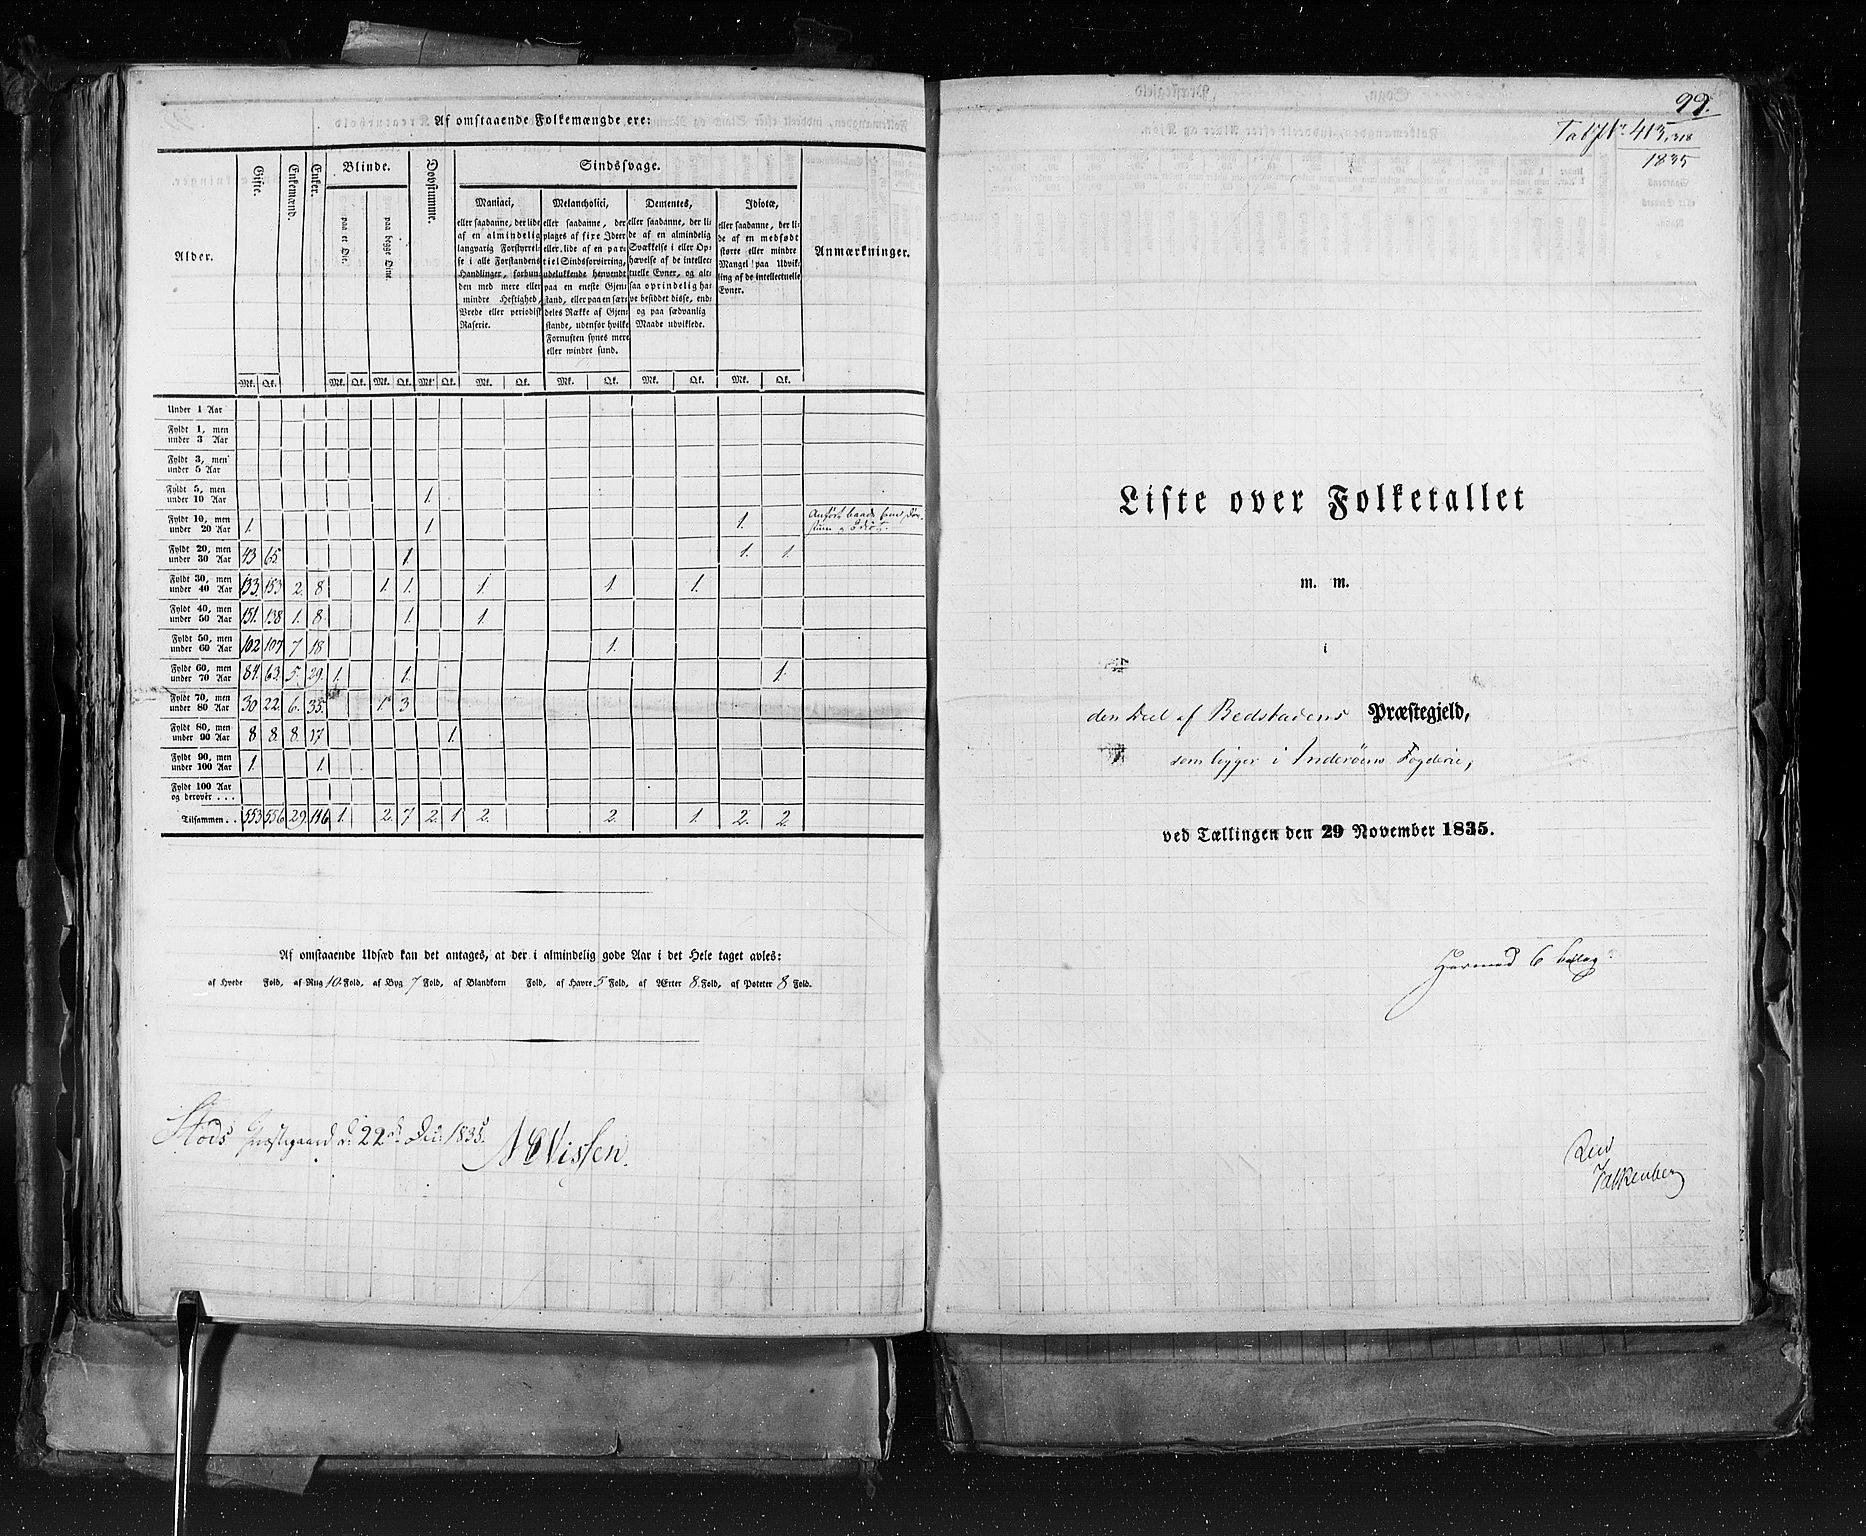 Af omstaaende Folkemængde ere:
Alder. Gifte. Enkemænd. Enker. Blinde. Dovstumme. Sindssvage. Anmærkninger.
paa et Øie. paa begge Øine.
Maniaci,
eller saadanne, der lide
af en almindelig
langvarig Forstyrrel-
se i alle Forstandens
Handlinger, forbun-
den med mere eller
mindre Heftighed,
Vrede eller periodisk
Raserie.
Melancholici,
eller saadanne, der
plages af fixe Ideer
eller lide af en par-
tiel Sindsforvirring,
udelukkende henvendt
paa en eneste Gjen-
stand, eller paa en sær-
deles Række af Gjen-
stande, udenfor hvilke
Fornuften synes mere
eller mindre sund.
Dementes,
eller saadanne, der li-
de af en almindelig
Svækkelse i eller Op-
hævelse af de intellec-
tuelle Evner, og alt-
saa oprindelig ha-
ve besiddet disse, end-
og paa sædvanlig
Maade udviklede.
Idiotæ,
eller saadanne, der li-
de af en medfødt
større eller mindre
Mangel paa Udvik-
ling af de intellectuelle
Evner.
Mk. Qk. Mk. Qk. Mk. Qk. Mk. Qk. Mk. Qk. Mk. Qk. Mk. Qk. Mk. Qk.
Under 1 Aar
Fyldt 1, men
under 3 Aar
Fyldt 3, men
under 5 Aar
Fyldt 5, men
under 10 Aar 1.
Fyldt 10, men
under 20 Aar 1. 1. 1.
Fyldt 20, men
under 30 Aar 43 65. 1. 1. 1.
Fyldt 30, men
under 40 Aar 133. 153 2. 8 1. 1. 1. 1. 1.
Fyldt 40, men
under 50 Aar 151. 138 1. 8 1. 1.
Fyldt 50, men
under 60 Aar 102 107 7 18 1.
Fyldt 60, men
under 70 Aar 84. 63. 5. 29. 1. 1. 1.
Fyldt 70, men
under 80 Aar 30 22. 6. 35. 1 3
Fyldt 80, men
under 90 Aar 8 8. 8. 17 1.
Fyldt 90, men
under 100 Aar 1. 1.
Fyldt 100 Aar
og derover . . .
Tilsammen . . 553 556 29. 116 1. 2. 7 2. 1 2. 2. 1. 2. 2.
Af omstaaende Udsæd kan det antages, at der i almindelig gode Aar i det Hele taget avles:
af Hvede Fold, af Rug 10 Fold, af Byg 7 Fold, af Blandkorn Fold, af Havre 5 Fold, af Ærter 8. Fold, af Poteter 8 Fold.
Stods Præstegaard d. 22d Dec: 1835. Nissen.
99.
Tab 413
1835
Liste over Folketallet
m. m.
i
den Deel af Bedstadens Præstegjeld,
som ligger i Inderøens Fogderie,
ved Tællingen den 29 November 1835.
Hermed 6 bilag
Rev
Falkenberg